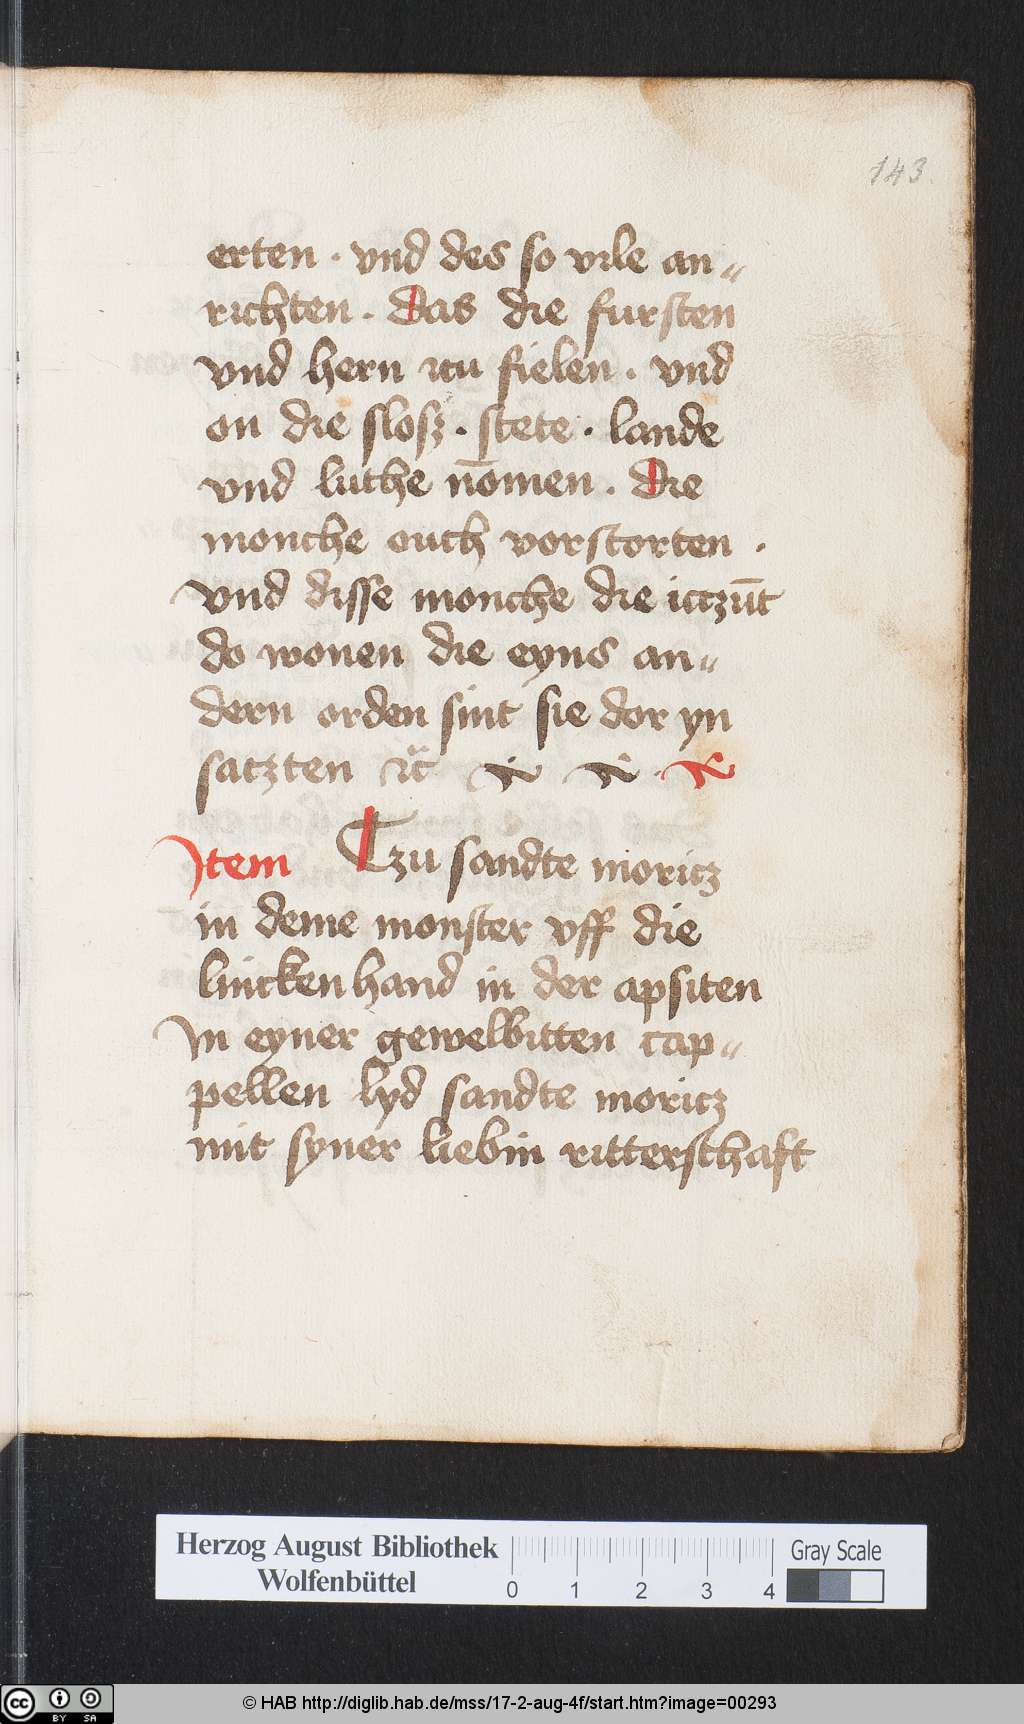 143
erten · vnd des so vile an„
richten . das die fursten
vnd hern zcu fielen . vnd
on die slosz . stete . lande
vnd luthe nōmen . die
monche ouch vorstorten .
vnd disse monche die ictzūt
do wonen die eyns an„
dern orden sint sie dor yn
satzten ꝛc̃
Item Tzu sandte moricz
in deme monster vff die
lincken hand in der apsiten
In eyner gewelbitten cap„
pellen lyd sandte moricz
mit syner liebin ritterschaft
Herzog August Bibliothek
Wolfenbüttel
0 1 2 3 4
Gray Scale
cc BY SA
© HAB http://diglib.hab.de/mss/17-2-aug-4f/start.htm?image=00293